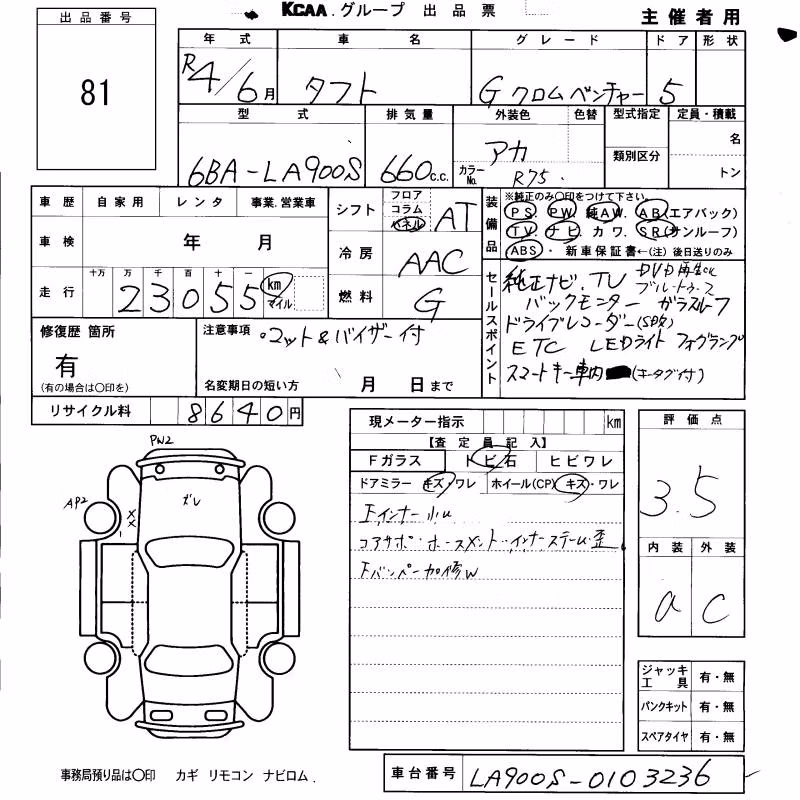 KCAA.グループ 出品票
主催者用
出品番号
81
年式 車名 グレード ドア 形状
R4/6月 タフト G クロムベンチャー 5
型式 排気量 外装色 色替 型式指定 定員・積載
6BA-LA900S 660c.c. アカ カラーNo. R75 類別区分 名 トン
車歴 自家用 レンタ 事業.営業車
車検 年 月
走行 十万 万 千 百 十 一 23055 km マイル
シフト フロア コラム パネル AT
冷房 AAC
燃料 G
装備品
※純正のみ〇印をつけて下さい。
PS. PW. 純AW. AB(エアバック)
TV. ナビ. カワ. SR(サンルーフ)
ABS・新車保証書←(注)後日送りのみ
セールスポイント
純正ナビ.TV DVD再生OK ブルートゥース
バックモニター ガラスルーフ
ドライブレコーダー(SD欠)
ETC LEDライト フォグランプ
スマートキー車内(キータグ付)
修復歴 箇所
有
(有の場合は〇印を)
注意事項
・マット&バイザー付
名変期日の短い方 月 日まで
リサイクル料 8640円
現メーター指示 km
【査定員記入】
Fガラス トビ石 ヒビワレ
ドアミラー キズ・ワレ ホイール(CP) キズ・ワレ
Fインナー小U
コアサポ・ホースメント・インナーステーム歪
Fバンパー加修W
評価点
3.5
内装 外装
a C
ジャッキ工具 有・無
パンクキット 有・無
スペアタイヤ 有・無
PW2
AP2
ガレ
XX
事務局預り品は〇印 カギ リモコン ナビロム.
車台番号 LA900S-0103236